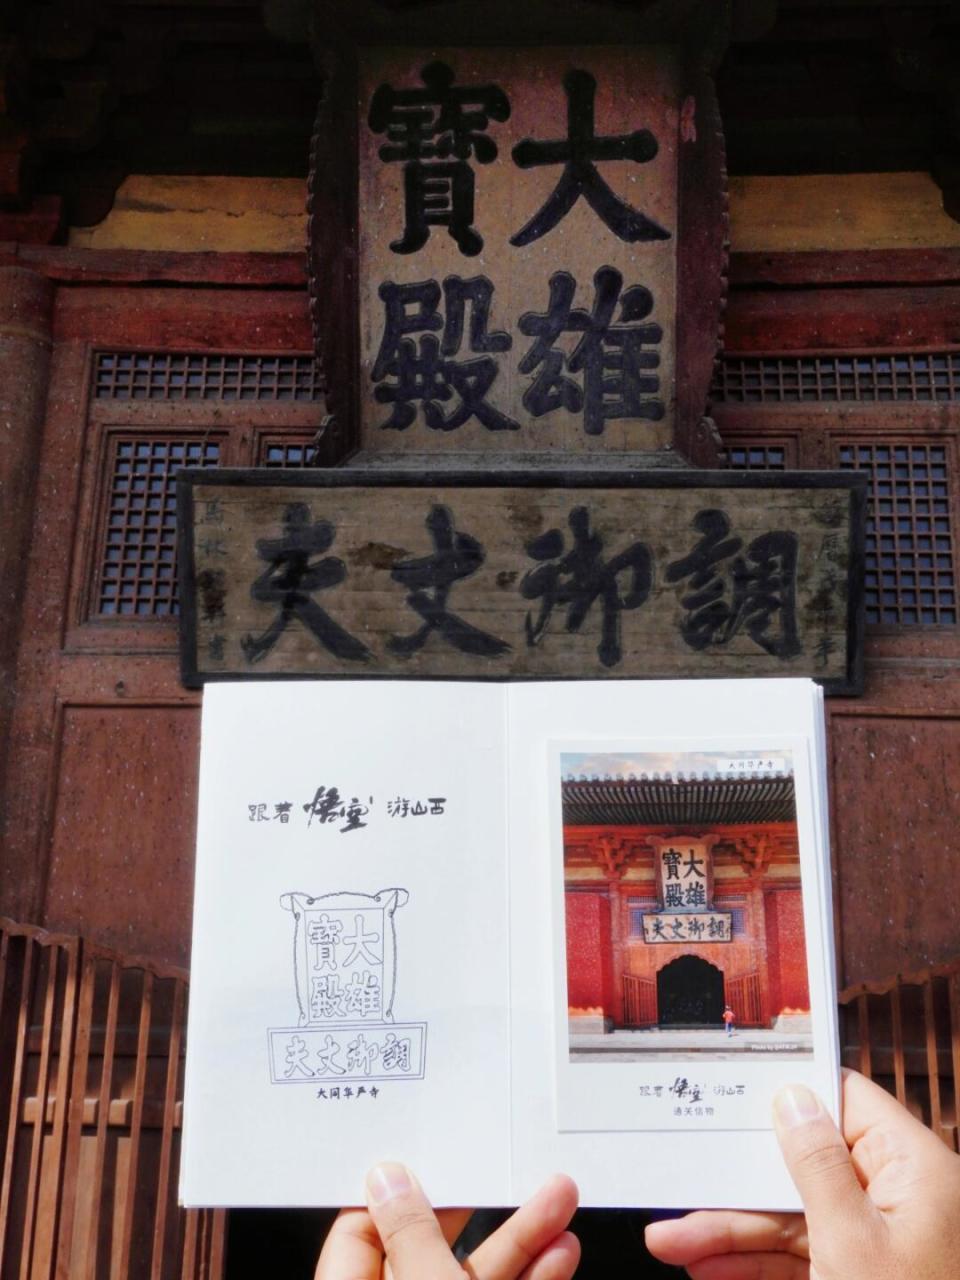 大雄
寶殿
調御丈夫
跟着悟空游山西
大雄
寶殿
調御丈夫
大同华严寺
大同华严寺
大雄
寶殿
調御丈夫
Photo by
跟着悟空游山西
通关信物